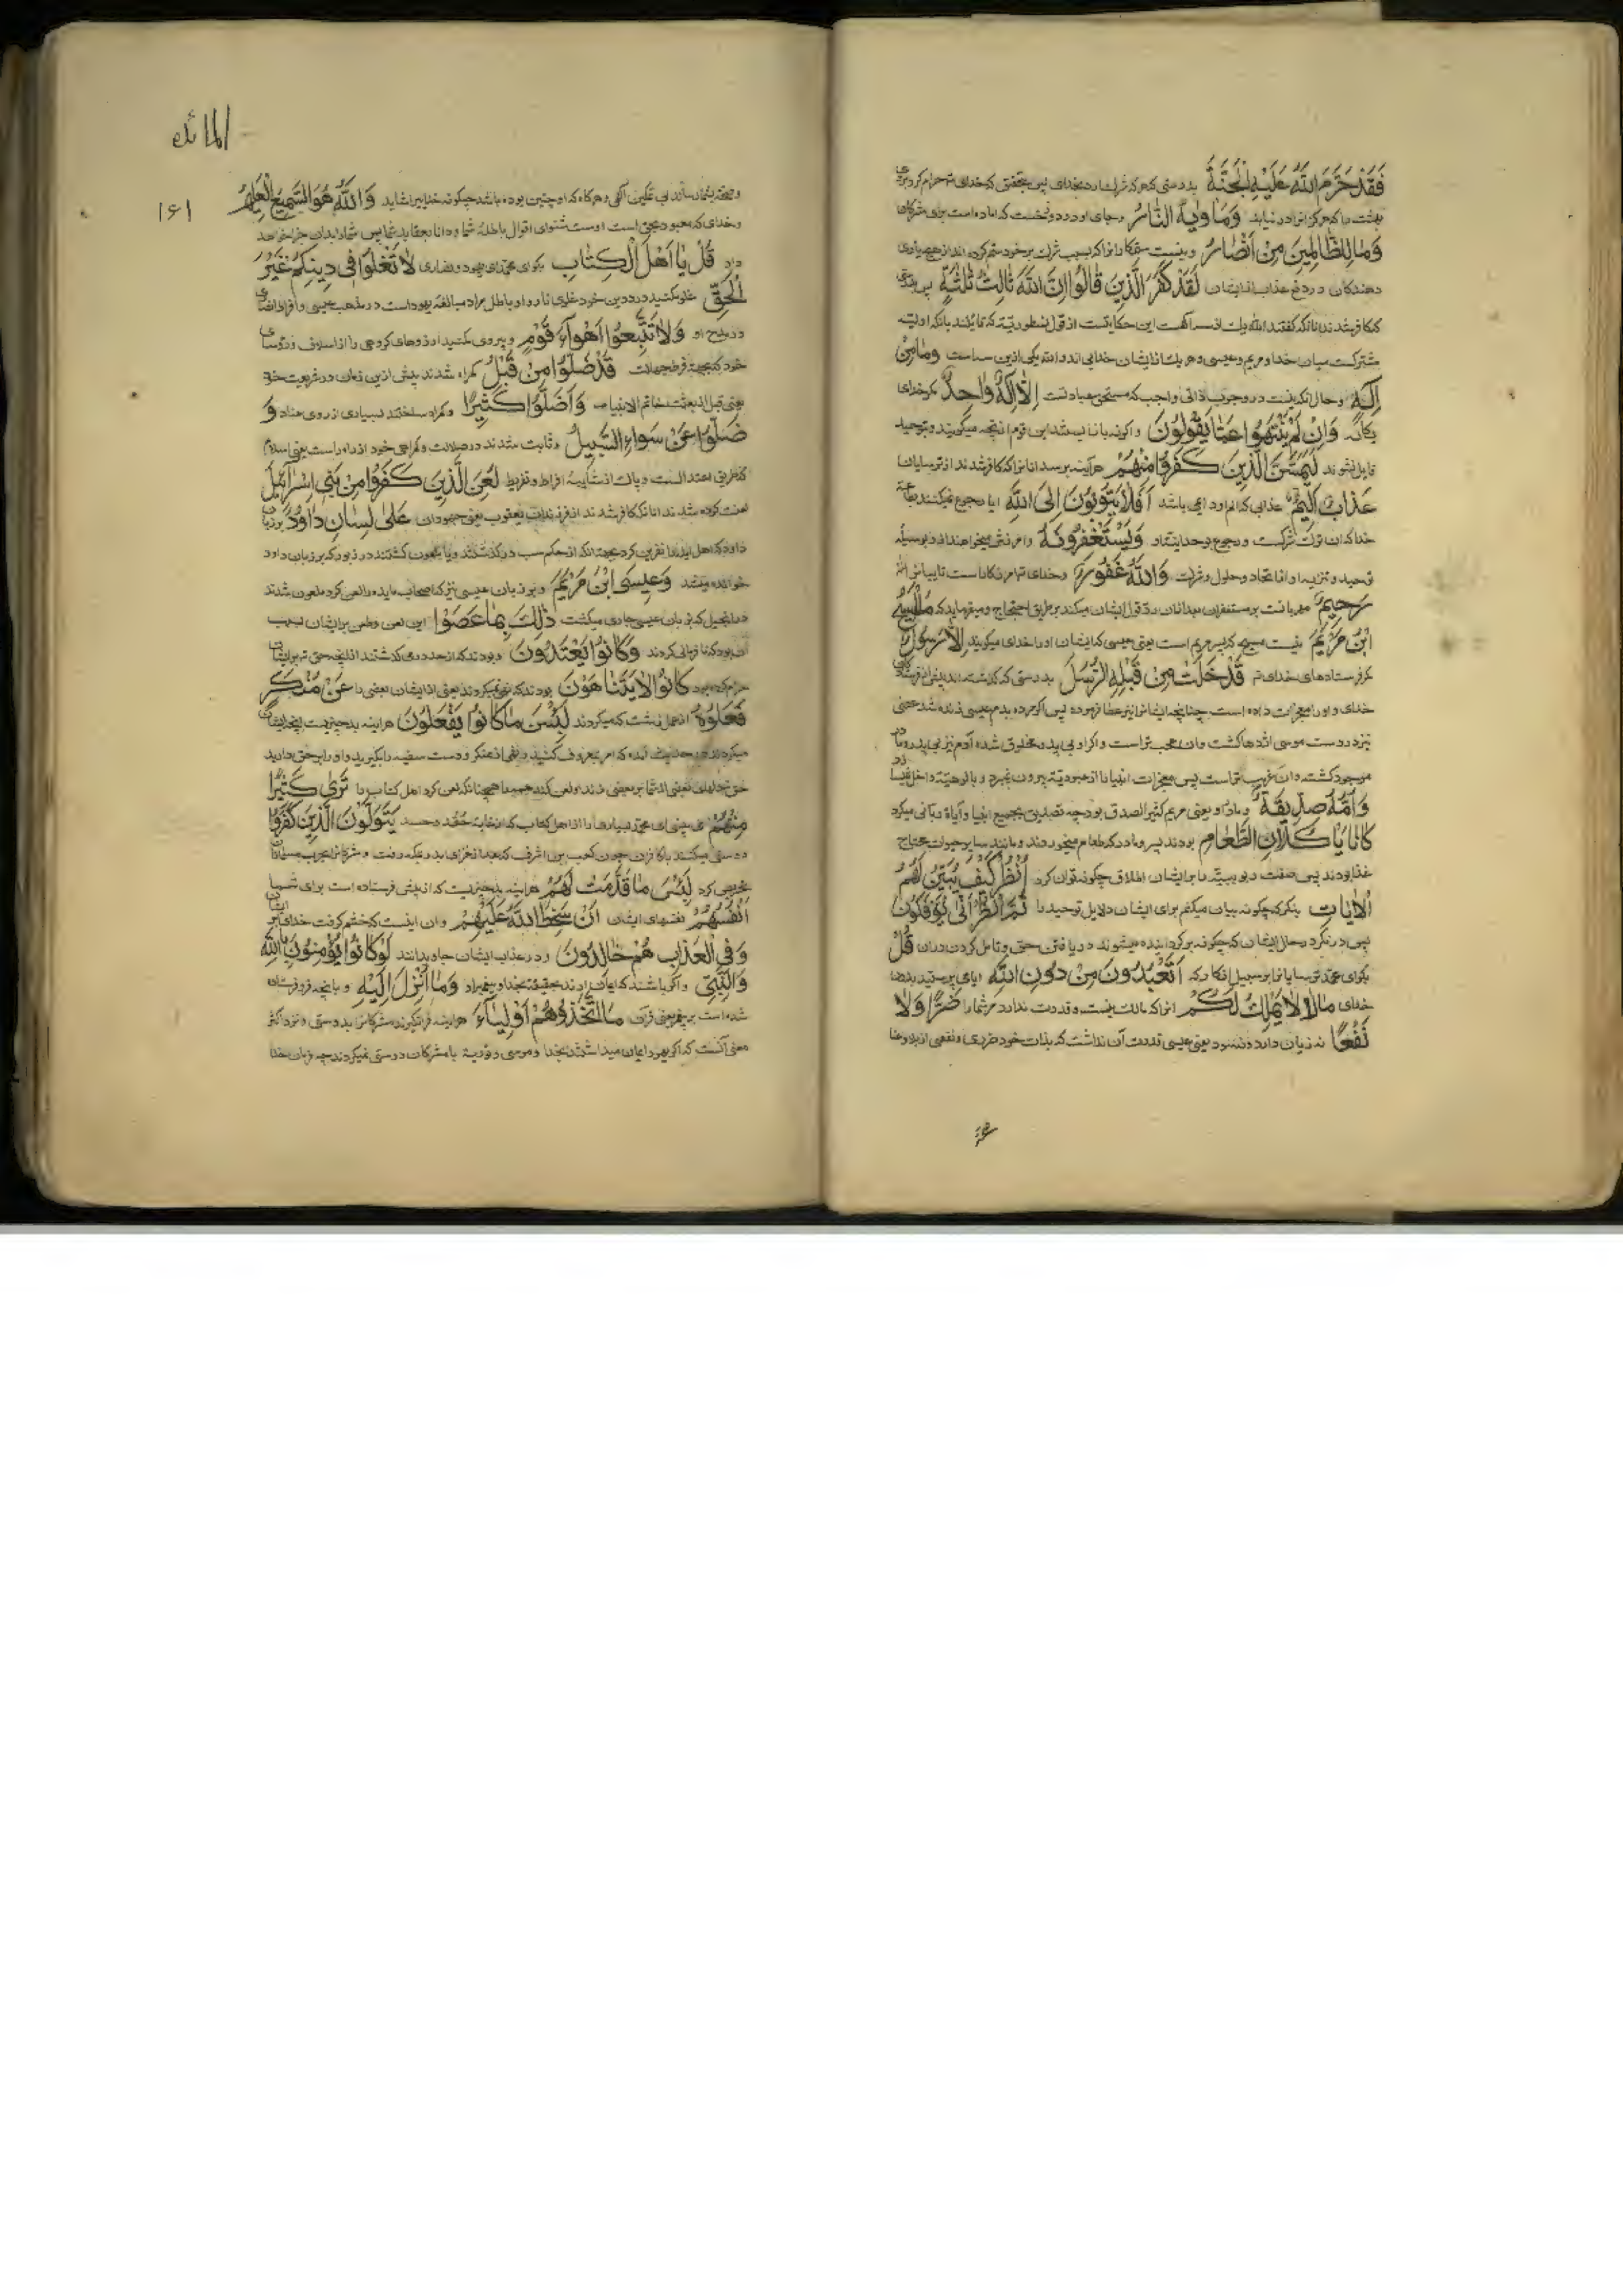 فَقَدْ حَرَّمَ اللّٰهُ عَلَيْهِ الْجَنَّةَ بدرستی که هر که شرک آرد بخدای پس بتحقیق که خدای تع حرام کرد بروی
بهشت را که هرگز او را در نیاید وَمَاْوٰیهُ النَّارُ وجای او در دوزخست که اماده است برای مشرکان
وَمَا لِلظَّالِمِینَ مِنْ اَنْصَارٍ ونیست ستمکارانرا که بسبب شرک بر خود ستم کرده اند از هیچ یاری
دهندکان در دفع عذاب از ایشان لَقَدْ كَفَرَ الَّذِینَ قَالُوا اِنَّ اللّٰهَ ثَالِثُ ثَلٰثَةٍ بدرستی
که کافر شدند انانکه کفتند الله یک از سه است این حکایتست از قول نسطوریّه که قایلند بانکه اولیّه
مشترکست میان خدا و مریم و عیسی و هر یک از ایشان خدایی اند و الله یکی ازین سه است وَمَا مِنْ
اِلٰهٍ وحال انکه نیست در وجوب ذاتی واجب که مستحق عبادتست اِلَّا اِلٰهٌ وَاحِدٌ مکر خدای
یکانه وَاِنْ لَمْ یَنْتَهُوا عَمَّا یَقُولُونَ واکر نه باز ایستند این قوم از انچه میکویند و بتوحید
قایل نشوند لَیَمَسَّنَّ الَّذِینَ كَفَرُوا مِنْهُمْ هر آینه برسد انانرا که کافر شدند از ترسایان
عَذَابٌ اَلِیمٌ عذابی که الم او دایمی باشد اَفَلَا یَتُوبُونَ اِلَى اللّٰهِ ایا رجوع نمیکنند بطاعة
خدا که ان ترک شرکست و رجوع بوحدانیّت او وَیَسْتَغْفِرُونَهُ وامرزش نمیخواهند ازو بوسیلهٔ
توحید و تنزیه او از اتحاد و حلول و شرکت وَاللّٰهُ غَفُورٌ وخدای تع امرزکاراست تایبانرا
رَحِیمٌ مهربانست بر مستغفران بعد ازان رد قول ایشان میکند بر طریق احتجاج و میفرماید که مَا الْمَسِیحُ
ابْنُ مَرْیَمَ نیست مسیح که پسر مریم است یعنی عیسی که ایشان او را خدای میکویند اِلَّا رَسُولٌ
مکر فرستادهای خدای تع قَدْ خَلَتْ مِنْ قَبْلِهِ الرُّسُلُ بدرستی که کذشته اند پیش از فرستادکان
خدای و او را معجزات داده است چنانچه ایشانرا نیز عطا فرموده پس اکر مرده بدم عیسی زنده شد عصی
نیز در دست موسی اژدها کشت وان عجب تراست واکر او بی پدر مخلوق شده آدم نیز بی پدر و مادر
موجود کشته وان غریب تراست پس معجزات انبیا را از عبودیّة بیرون نبرد و بالوهیّة داخل نمیسازد
وَاُمُّهُ صِدِّیقَةٌ ومادر او یعنی مریم کثیر الصدق بود چه تصدیق بجمیع انبیا و آیات ربّانی میکرد
كَانَا یَاْكُلَانِ الطَّعَامَ بودند پسر و مادر که طعام میخوردند و مانند سایر حیوانات محتاج
غذا بودند پس صفت ربوبیّة را بر ایشان اطلاق چکونه توان کرد اُنْظُرْ كَیْفَ نُبَیِّنُ لَهُمُ
الْاٰیَاتِ بنکر که چکونه بیان میکنم برای ایشان دلایل توحید را ثُمَّ انْظُرْ اَنّٰى یُؤْفَكُونَ
پس در نکر در حال ایشان که چکونه برکردانیده میشوند در یافتن حق و تامل کردن دران قُلْ
بکو ای محمّد ترسایانرا بر سبیل انکار که اَتَعْبُدُونَ مِنْ دُونِ اللّٰهِ ایا می پرستید بدون
خدای مَا لَا یَمْلِكُ لَكُمْ انرا که مالک نیست و قدرت ندارد مر شما را ضَرًّا وَلَا
نَفْعًا نه زیان دارد و نه سود یعنی عیسی قدرت آن نداشت که بذات خود ضرری و نفعی
المائده
۱۶۱
وَاللّٰهُ هُوَ السَّمِیعُ الْعَلِیمُ
وخدای که معبود بحق است اوست شنوای اقوال باطلهٔ شما و دانا بعقاید شما پس شما را بدان جزا خواهد
داد قُلْ یَا اَهْلَ الْكِتَابِ بکو ای محمّد ای یهود و نصاری لَا تَغْلُوا فِی دِینِكُمْ غَیْرَ
الْحَقِّ غلو مکنید در دین خود غلوی ناروا و باطل مراد مبالغهٔ یهود است در مذهب عیسی و افراط نصاری
در مدح او وَلَا تَتَّبِعُوا اَهْوَاءَ قَوْمٍ و پیروی مکنید ارزوهای کروهی را از اسلاف و رؤسای
خود که بجهة فرط جهالت قَدْ ضَلُّوا مِنْ قَبْلُ کمراه شدند پیش ازین زمان در شریعت خود
یعنی قبل از بعثت خاتم الانبیا وَاَضَلُّوا كَثِیرًا وکمراه ساختند بسیاری از روی عناد وَ
ضَلُّوا عَنْ سَوَاءِ السَّبِیلِ وثابت شدند در ضلالت و کمراهی خود از راه راست یعنی اسلام
که طریق اعتدالست و پاک از شایبهٔ افراط و تفریط لُعِنَ الَّذِینَ كَفَرُوا مِنْ بَنِی اِسْرَائِیلَ
لعنت کرده شدند انانکه کافر شدند از فرزندان یعقوب یعنی جهودان عَلٰى لِسَانِ دَاوُدَ بر زبان
داود که اهل ایله را نفرین کرد بجهة انکه از حکم سبت در کذشتند و یا ملعون کشتند در زبور که بر زبان داود
خوانده میشد وَعِیسَى ابْنِ مَرْیَمَ و بر زبان عیسی نیز که اصحاب مایده را لعن کرد ملعون شدند
در انجیل که بر زبان عیسی جاری میکشت ذٰلِكَ بِمَا عَصَوْا این لعن و طعن بر ایشان بسبب
آن بود که نافرمانی کردند وَكَانُوا یَعْتَدُونَ و بودند که از حد در می کذشتند از انچه حق تع بر ایشان
حرام کرده بود كَانُوا لَا یَتَنَاهَوْنَ بودند که نهی نمیکردند یعنی از ایشان بعضی را عَنْ مُنْكَرٍ
فَعَلُوهُ از عمل زشت که میکردند لَبِئْسَ مَا كَانُوا یَفْعَلُونَ هر اینه بد چیزیست انچه ایشان
میکردند در حدیث آمده که امر بمعروف کنید و نهی از منکر و دست سفیه را بکیرید و او را بر حق دارید
تَرٰى كَثِیرًا
مِنْهُمْ می بینی ای محمّد بسیاری را از اهل کتاب که از غایة حقد و حسد یَتَوَلَّوْنَ الَّذِینَ كَفَرُوا
دوستی میکنند با کافران چون کعب بن اشرف که بعد از غزای بدر بمکه رفت و مشرکانرا بحرب مسلمانان
تحریص کرد لَبِئْسَ مَا قَدَّمَتْ لَهُمْ هر اینه بد چیزیست که از پیش فرستاده است برای
اَنْفُسُهُمْ نفسهای ایشان اَنْ سَخِطَ اللّٰهُ عَلَیْهِمْ وان اینست که خشم کرفت خدای بر ایشان
وَفِی الْعَذَابِ هُمْ خَالِدُونَ و در عذاب ایشان جاویدانند وَلَوْ كَانُوا یُؤْمِنُونَ بِاللّٰهِ
وَالنَّبِیِّ واکر باشند که ایمان ارند بحقیقة بخدا و پیغمبر او وَمَا اُنْزِلَ اِلَیْهِ و بانچه فرو فرستاده
شده است بر پیغمبر یعنی قران مَا اتَّخَذُوهُمْ اَوْلِیَاءَ هر اینه فرا نکیرند مشرکانرا بدوستی و نزد اکثر
معنی آنست که اکر یهود ایمان میداشتند بخدا و موسی و توریة با مشرکان دوستی نمیکردند چه